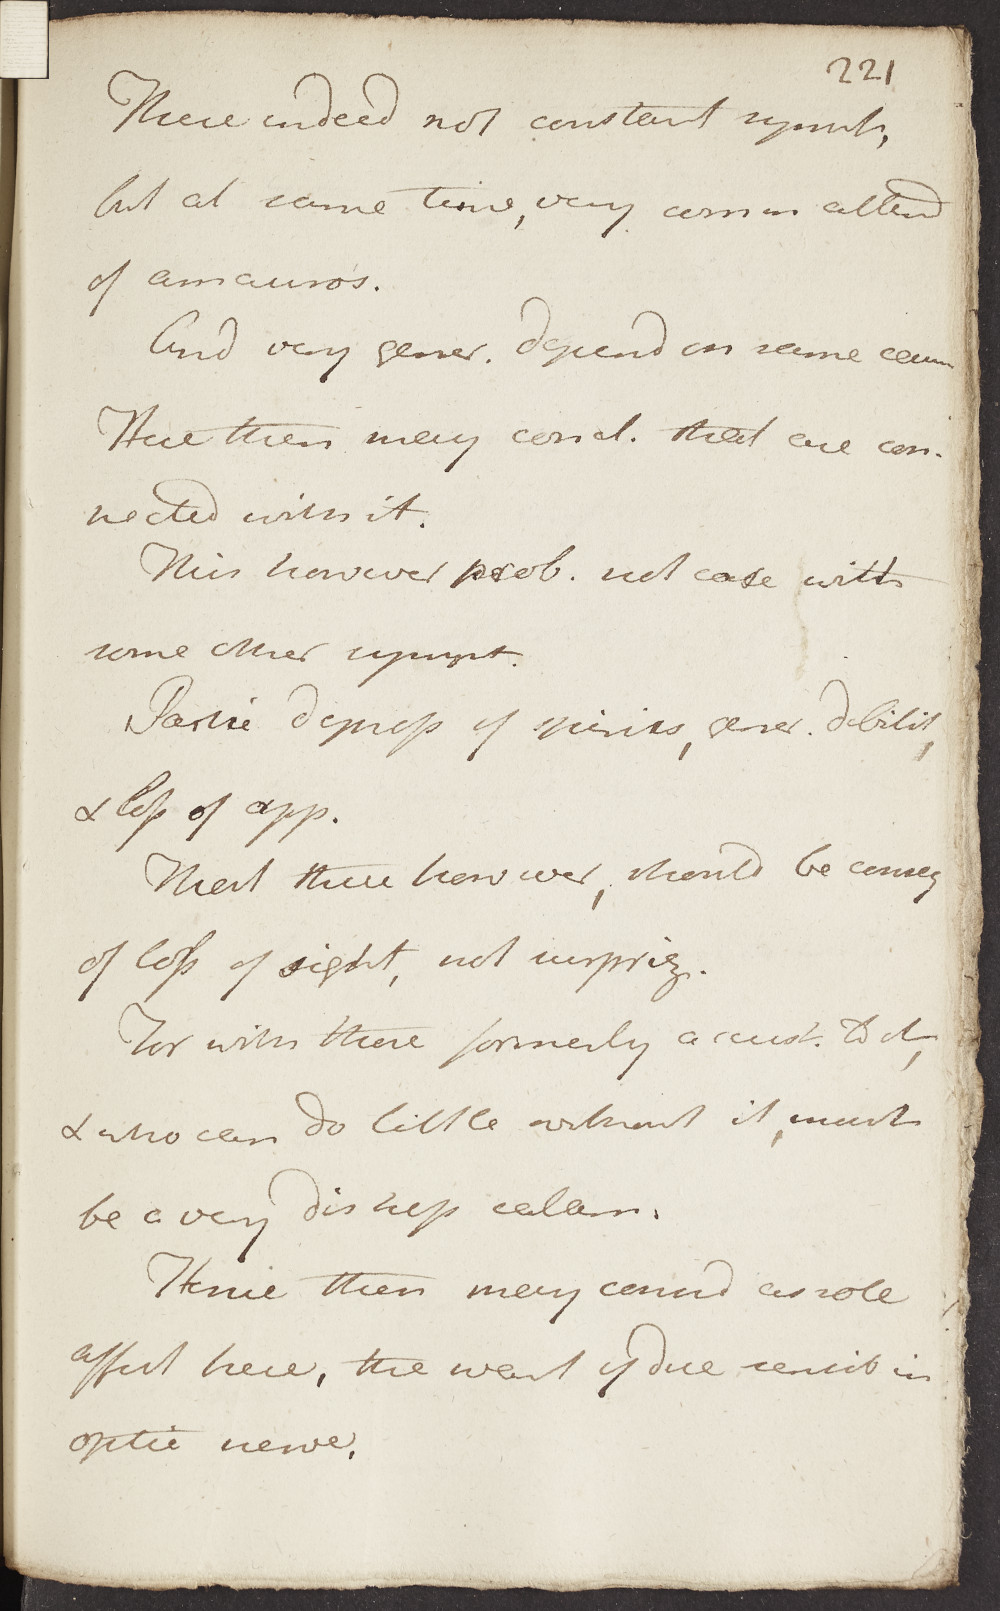 221
These indeed not constant sympt,
but at same time, very common attend
of amauros.
And very gener. depend on same caus
Hence then may concl. that are con-
nected with it.
This however prob. not case with
some other sympt.
Partic depress of spirits, gener. debilit,
& loss of app.
That these however, should be conseq
of loss of sight, not surpriz.
For with those formerly accust. to it,
& who can do little without it, must
be a very distress calam.
Hence then may consid as sole
affect here, the want of due sensib in
optic nerve.